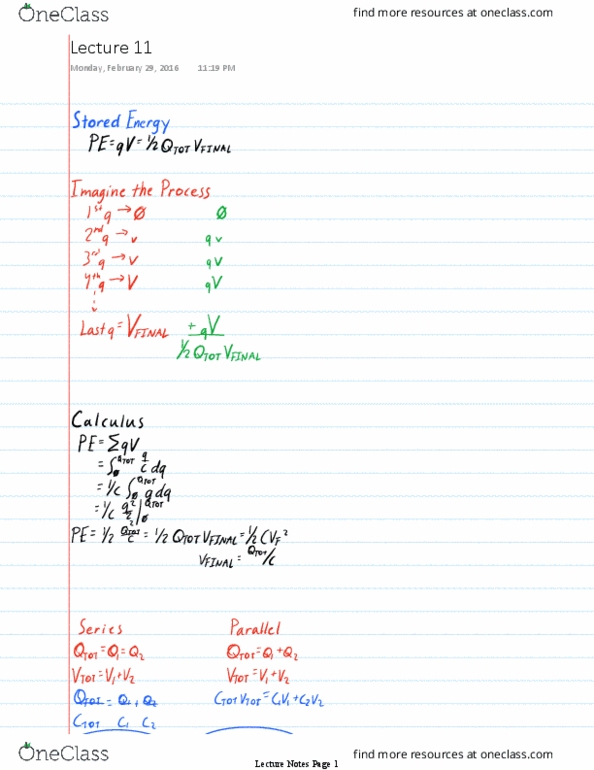 OneClass find more resources at oneclass.com
Lecture 11
Monday, February 29, 2016 11:19 PM
Stored Energy
PE=qV=½ Q_TOT V_FINAL
Imagine the Process
1st q → Ø Ø
2nd q → v qv
3rd q → V qV
4th q → V qV
Last q = V_FINAL + qV
½ Q_TOT V_FINAL
Calculus
PE = ΣqV
= ∫_0^Q_TOT q/C dq
= 1/C ∫_0^Q_TOT q dq
= 1/C q²/2 |_0^Q_TOT
PE = ½ Q_TOT²/C = ½ Q_TOT V_FINAL = ½ CV_F²
V_FINAL = Q_TOT/C
Series Parallel
Q_TOT = Q₁ = Q₂ Q_TOT = Q₁ + Q₂
V_TOT = V₁ + V₂ V_TOT = V₁ + V₂
Q_TOT = Q₁ + Q₂ C_TOT V_TOT = C₁V₁ + C₂V₂
C_TOT C₁ C₂
OneClass find more resources at oneclass.com
Lecture Notes Page 1